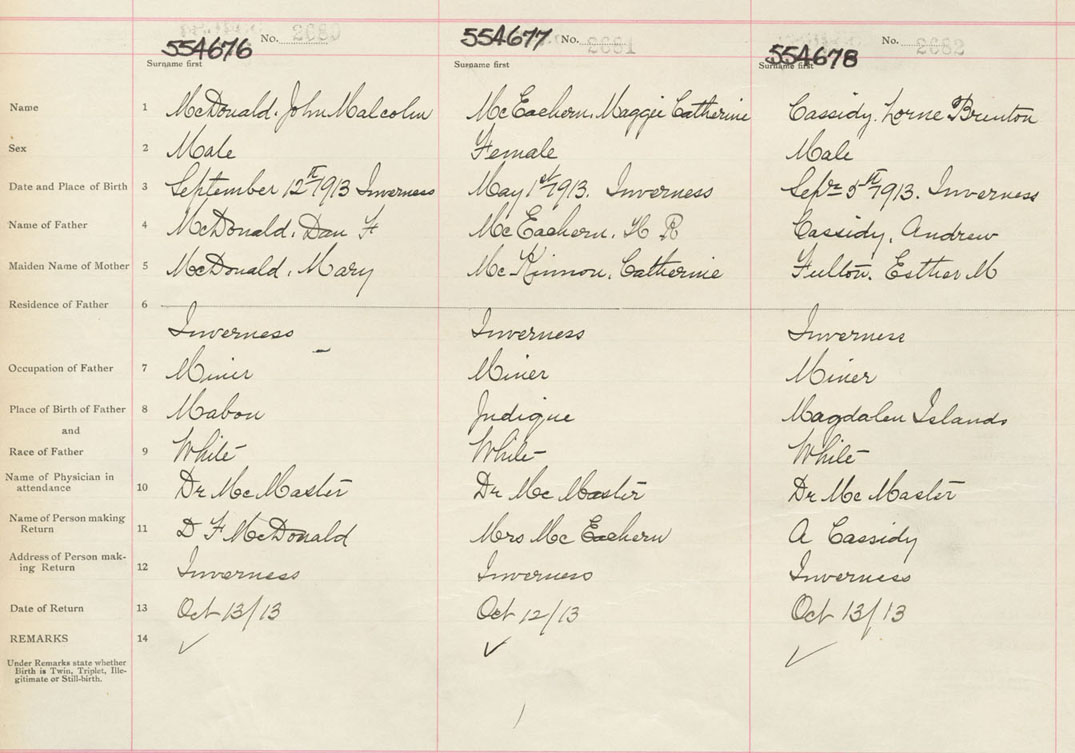 554676 No. 554677 No. 554678 No.
Surname first Surname first Surname first
Name 1 McDonald, John Malcolm McEachern, Maggie Catherine Cassidy, Lorne Brenton
Sex 2 Male Female Male
Date and Place of Birth 3 September 12th 1913 Inverness May 1st 1913. Inverness Sepr 5th 1913. Inverness
Name of Father 4 McDonald, Dan F McEachern, H R Cassidy, Andrew
Maiden Name of Mother 5 McDonald, Mary McKinnon, Catherine Fulton, Esther M
Residence of Father 6
Inverness Inverness Inverness
Occupation of Father 7 Miner Miner Miner
Place of Birth of Father 8 Mabou Judique Magdalen Islands
and
Race of Father 9 White White White
Name of Physician in
attendance 10 Dr McMaster Dr McMaster Dr McMaster
Name of Person making
Return 11 D F McDonald Mrs McEachern A Cassidy
Address of Person mak-
ing Return 12 Inverness Inverness Inverness
Date of Return 13 Oct 13/13 Oct 12/13 Oct 13/13
REMARKS 14 ✓ ✓ ✓
Under Remarks state whether
Birth is Twin, Triplet, Ille-
gitimate or Still-birth.